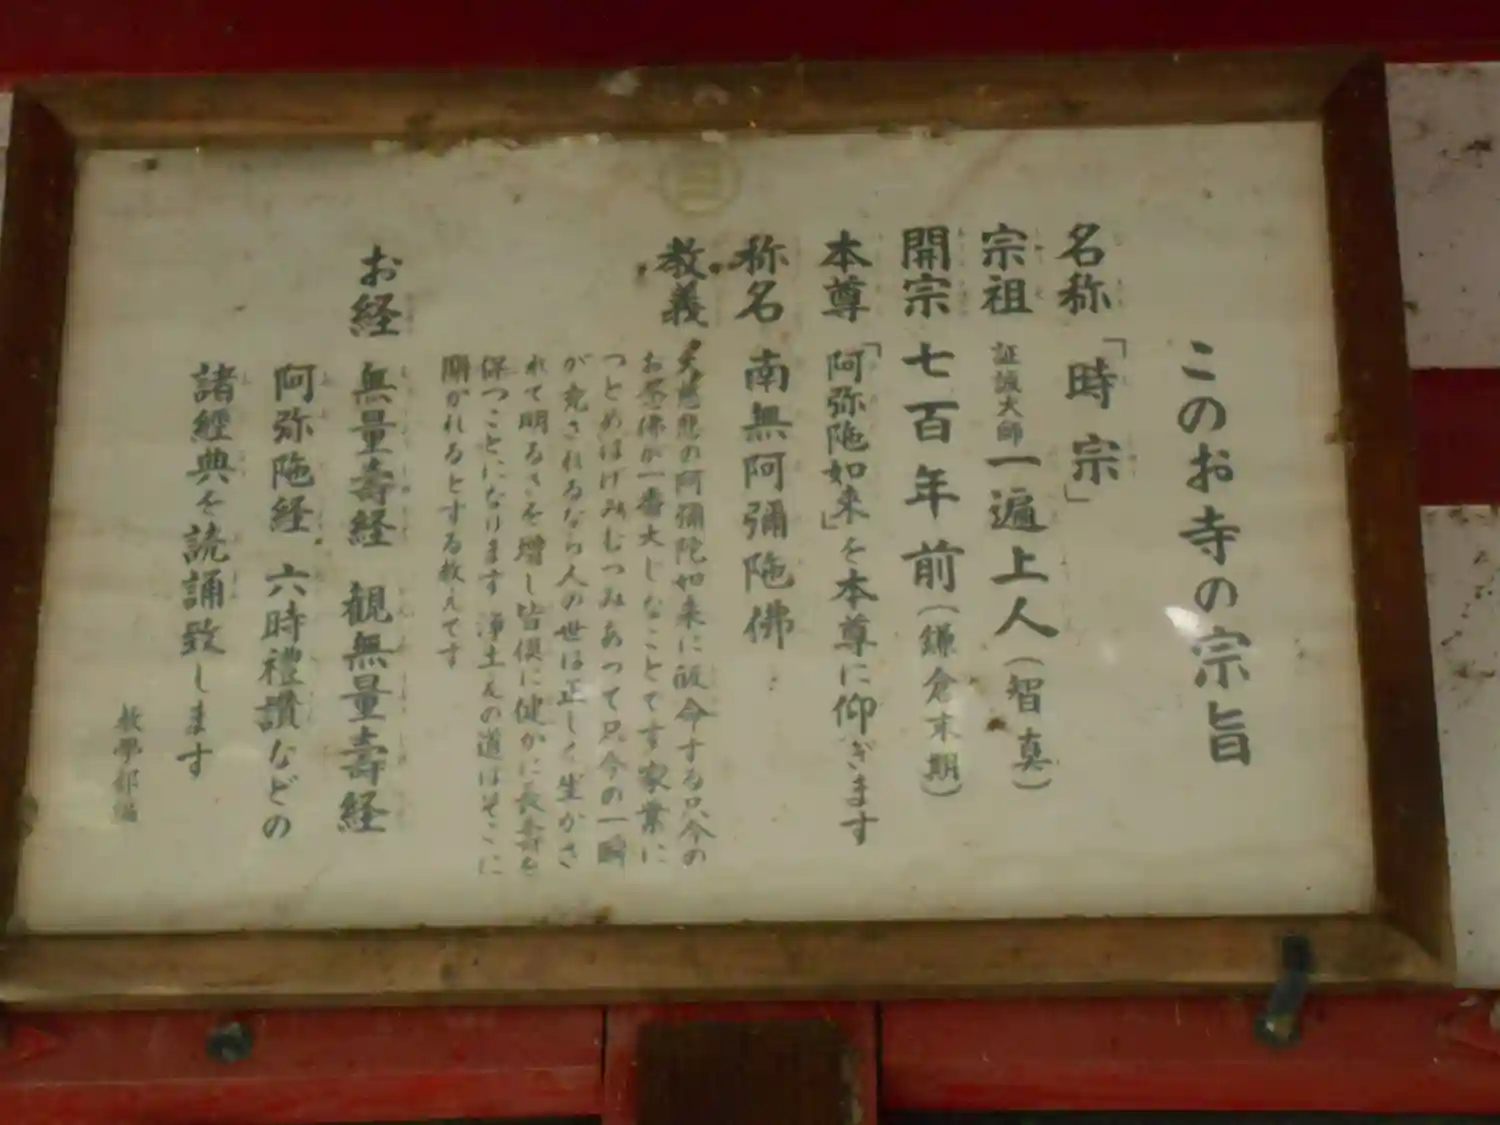 このお寺の宗旨
名称「時宗」
宗祖 証誠大師 一遍上人(智真)
開宗 七百年前(鎌倉末期)
本尊「阿弥陁如来」を本尊に仰ぎます
称名 南無阿彌陁佛
教義 大慈悲の阿彌陀如来に皈命する只今の
お念佛が一番大じなことです家業に
つとめはげみむつみあって只今の一瞬
が充されるなら人の世は正しく生かさ
れて明るさを増し皆倶に健かに長寿を
保つことになります 浄土えの道はそこに
開かれるとする教えです
お経 無量壽経 観無量壽経
阿弥陁経 六時禮讃などの
諸經典を読誦致します
教學部編